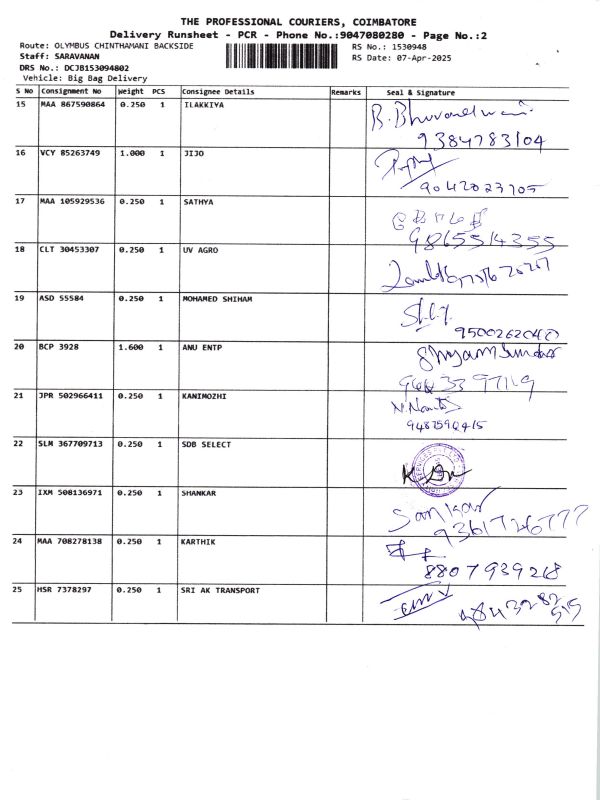 THE PROFESSIONAL COURIERS, COIMBATORE
Delivery Runsheet - PCR - Phone No.:9047080280 - Page No.:2
Route: OLYMBUS CHINTHAMANI BACKSIDE
RS No.: 1530948
Staff: SARAVANAN
RS Date: 07-Apr-2025
DRS No.: DCJB153094802
Vehicle: Big Bag Delivery
S No Consignment No Weight PCS Consignee Details Remarks Seal & Signature
15 MAA 867590864 0.250 1 ILAKKIYA
9384783104
16 VCY 85263749 1.000 1 JIJO
9042023705
17 MAA 105929536 0.250 1 SATHYA
9865514355
18 CLT 30453307 0.250 1 UV AGRO
19 ASD 55584 0.250 1 MOHAMED SHIHAM
20 BCP 3928 1.600 1 ANU ENTP
Shyam Sundar
21 JPR 502966411 0.250 1 KANIMOZHI
22 SLM 367709713 0.250 1 SDB SELECT
23 IXM 508136971 0.250 1 SHANKAR
Sankar
9361726777
24 MAA 708278138 0.250 1 KARTHIK
8807939218
25 HSR 7378297 0.250 1 SRI AK TRANSPORT